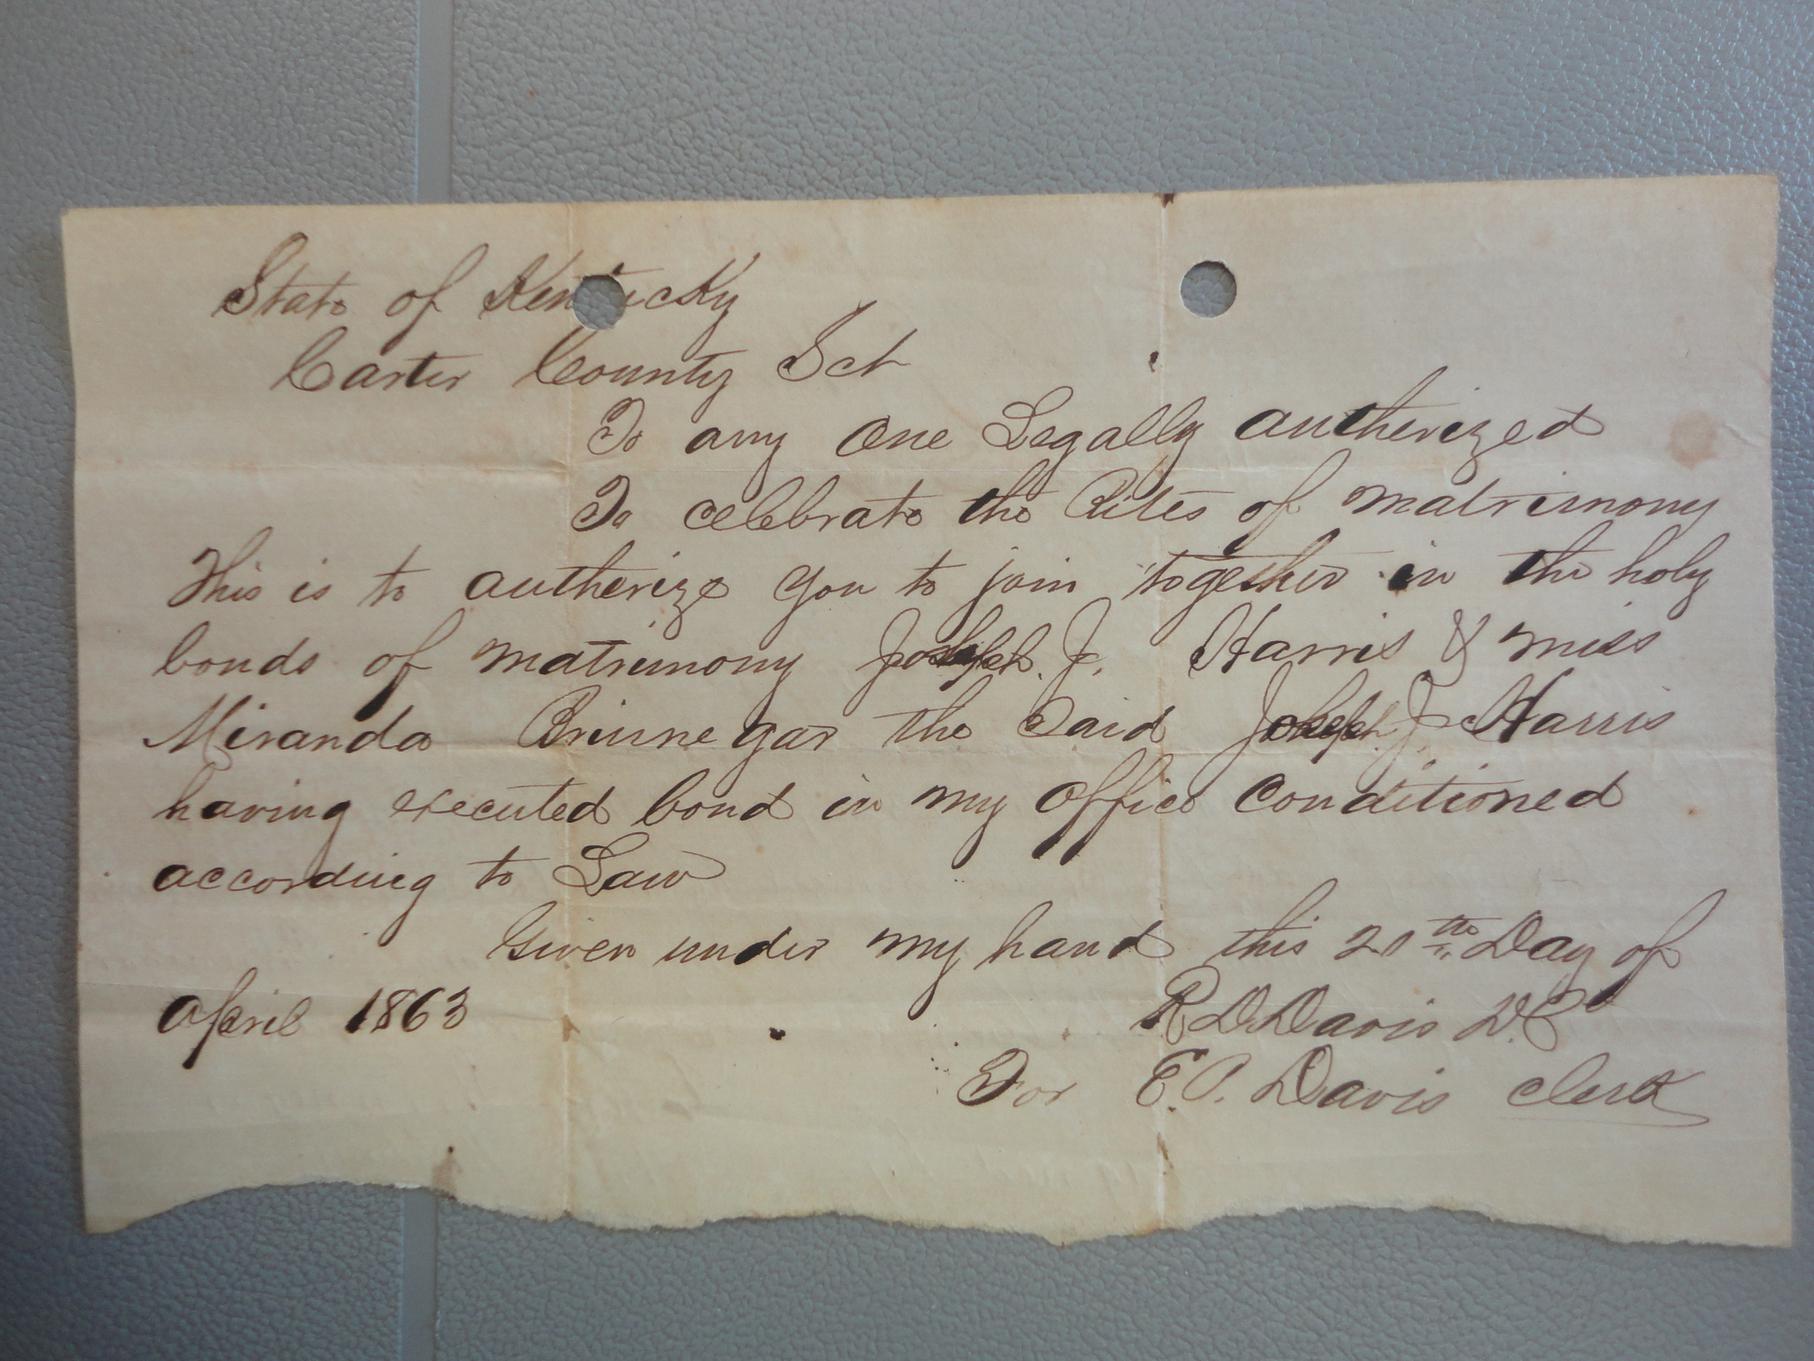 State of Kentucky
Carter County Sct
To any one Legally autherized
To celebrate the Rites of matrimony
This is to autherize you to join together in the holy
bonds of matrimony Joseph J. Harris & miss
Miranda Brinnegar the Said Joseph J. Harris
having executed bond in my office conditioned
according to Law
Given under my hand this th Day of
April 1863 R D Davis D.C
For E.P. Davis clerk